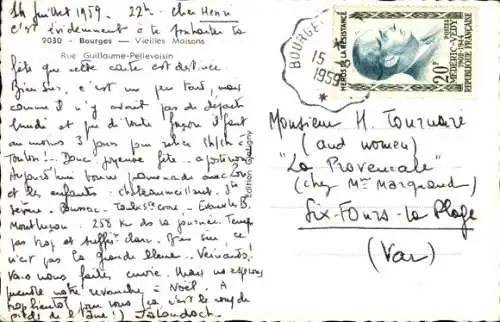 14 juillet 1959. 22h. Cher Henri
c'est évidemment à te souhaiter ta
9030 - Bourges — Vieilles Maisons
Rue Guillaume-Pellevoisin
fête que cette carte est destinée.
Bien sûr, c'est un peu tard, mais
comme il n'y avait pas de départ
lundi et que de toute façon il faut
au moins 3 jours pour
Toulon!.. Donc joyeuse fête
Aujourd'hui bonne promenade avec
et les enfants: Chateaumeillant. Ste
Sévère. Boussac.
Montluçon: 258 Km ds la journée. Temps
pas trop et suffist clair. Bien sûr, ce
n'est pas la grande bleue. Veinards,
va. nous faites envie. Mais nous espérons
prendre notre revanche à Noël. A
bientôt pour vous (ça c'est le coup de
pied de l'âne!)
Edition
BOURGES
15
1959
HÉROS DE LA RÉSISTANCE
20F
POSTES
MÉDÉRIC-VÉDY
1902-1944
RÉPUBLIQUE FRANÇAISE
Monsieur H. Tournaire
(and women)
"La Provençale"
(chez Me Marquand)
Six-Fours-la Plage
(Var)